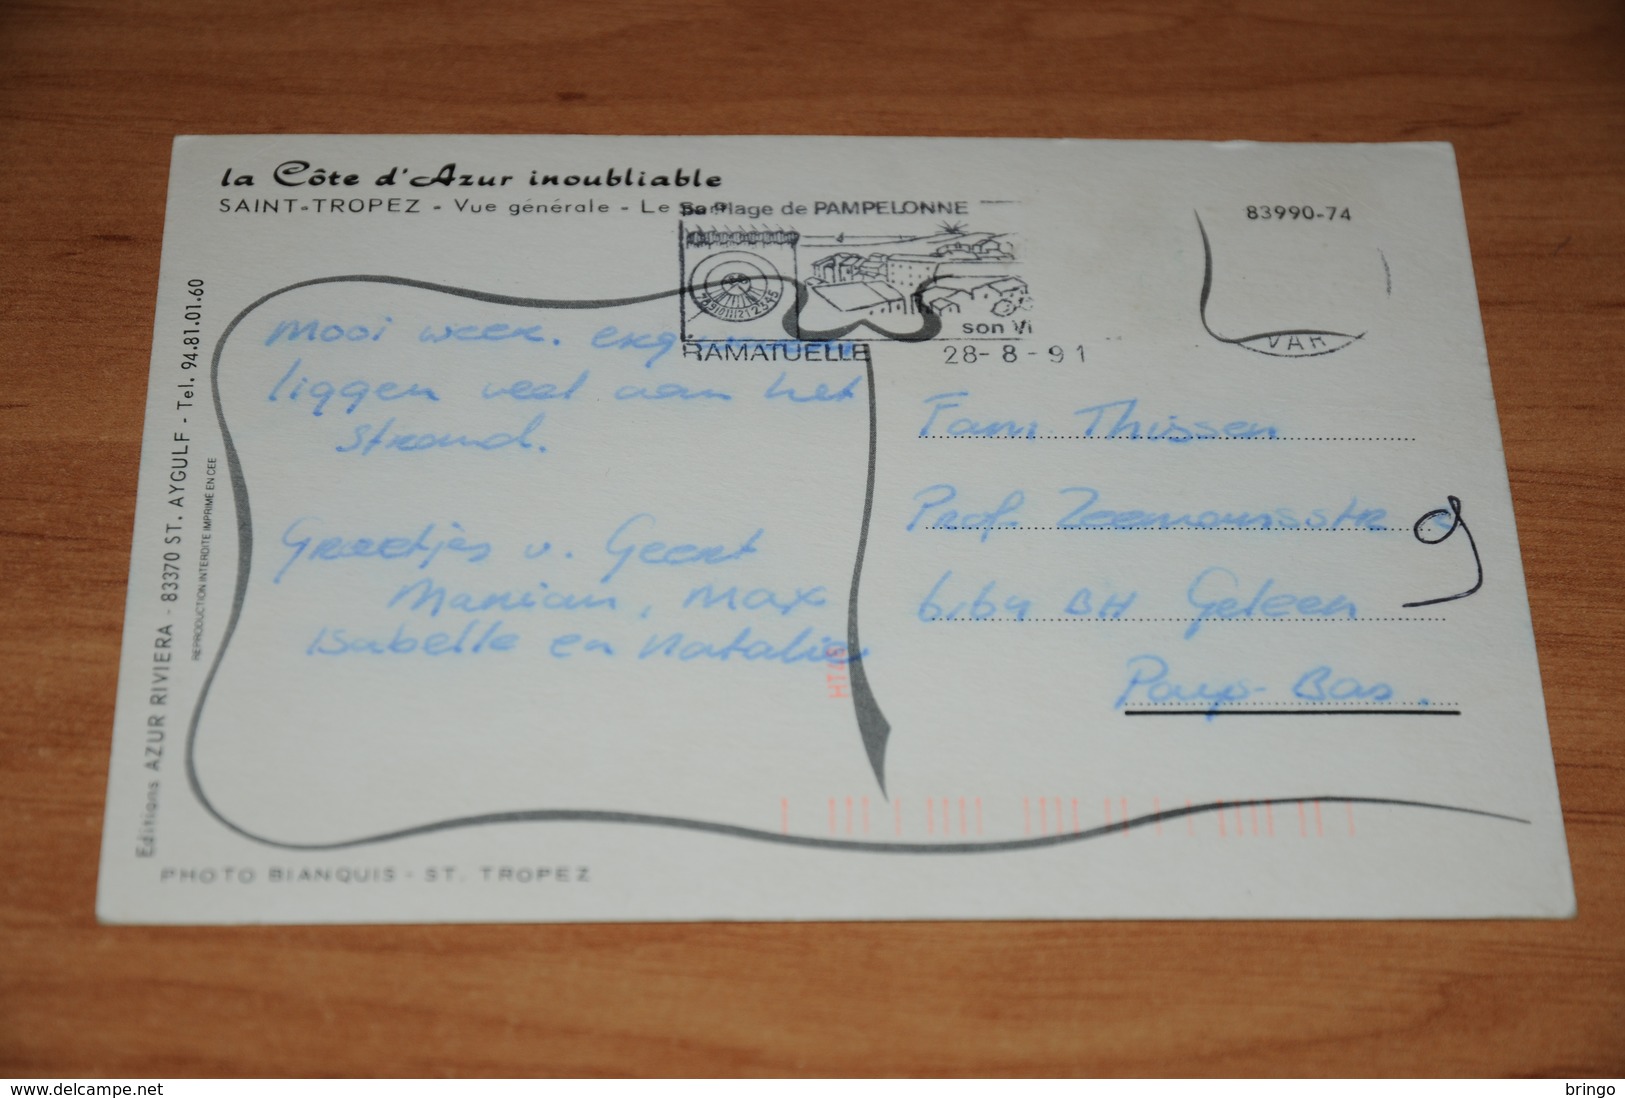 la Côte d'Azur inoubliable
SAINT-TROPEZ - Vue générale - Le
Plage de PAMPELONNE
83990-74
son Vi
VAR
RAMATUELLE
28-8-91
Mooi weer.
liggen veel aan het
strand.
Groetjes v. Geert
Marian, Max
Isabelle en Natalie.
Fam. Thissen
Prof.
9
6164 BH Geleen
Pays-Bas.
HT45
Editions AZUR RIVIERA - 83370 ST. AYGULF - Tel. 94.81.01.60
REPRODUCTION INTERDITE IMPRIME EN CEE
PHOTO BIANQUIS - ST. TROPEZ
www.delcampe.net
bringo